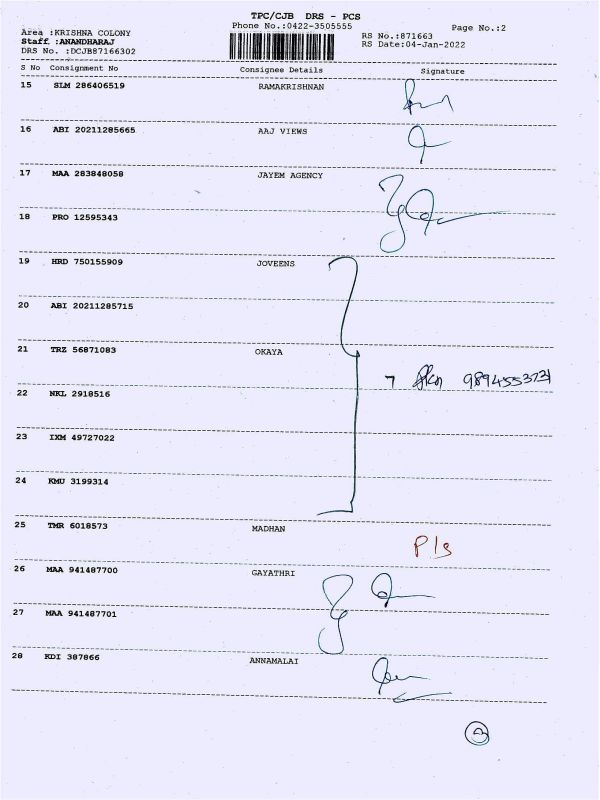 TPC/CJB DRS - PCS
Area :KRISHNA COLONY Phone No.:0422-3505555 Page No.:2
Staff :ANANDHARAJ RS No.:871663
DRS No. :DCJB87166302 RS Date:04-Jan-2022
S No Consignment No Consignee Details Signature
15 SLM 286406519 RAMAKRISHNAN
16 ABI 20211285665 AAJ VIEWS
17 MAA 283848058 JAYEM AGENCY
18 PRO 12595343
19 HRD 750155909 JOVEENS
20 ABI 20211285715
21 TRZ 56871083 OKAYA
9894553731
22 NKL 2918516
23 IXM 49727022
24 KMU 3199314
25 TMR 6018573 MADHAN
P/s
26 MAA 941487700 GAYATHRI
27 MAA 941487701
28 KDI 387866 ANNAMALAI